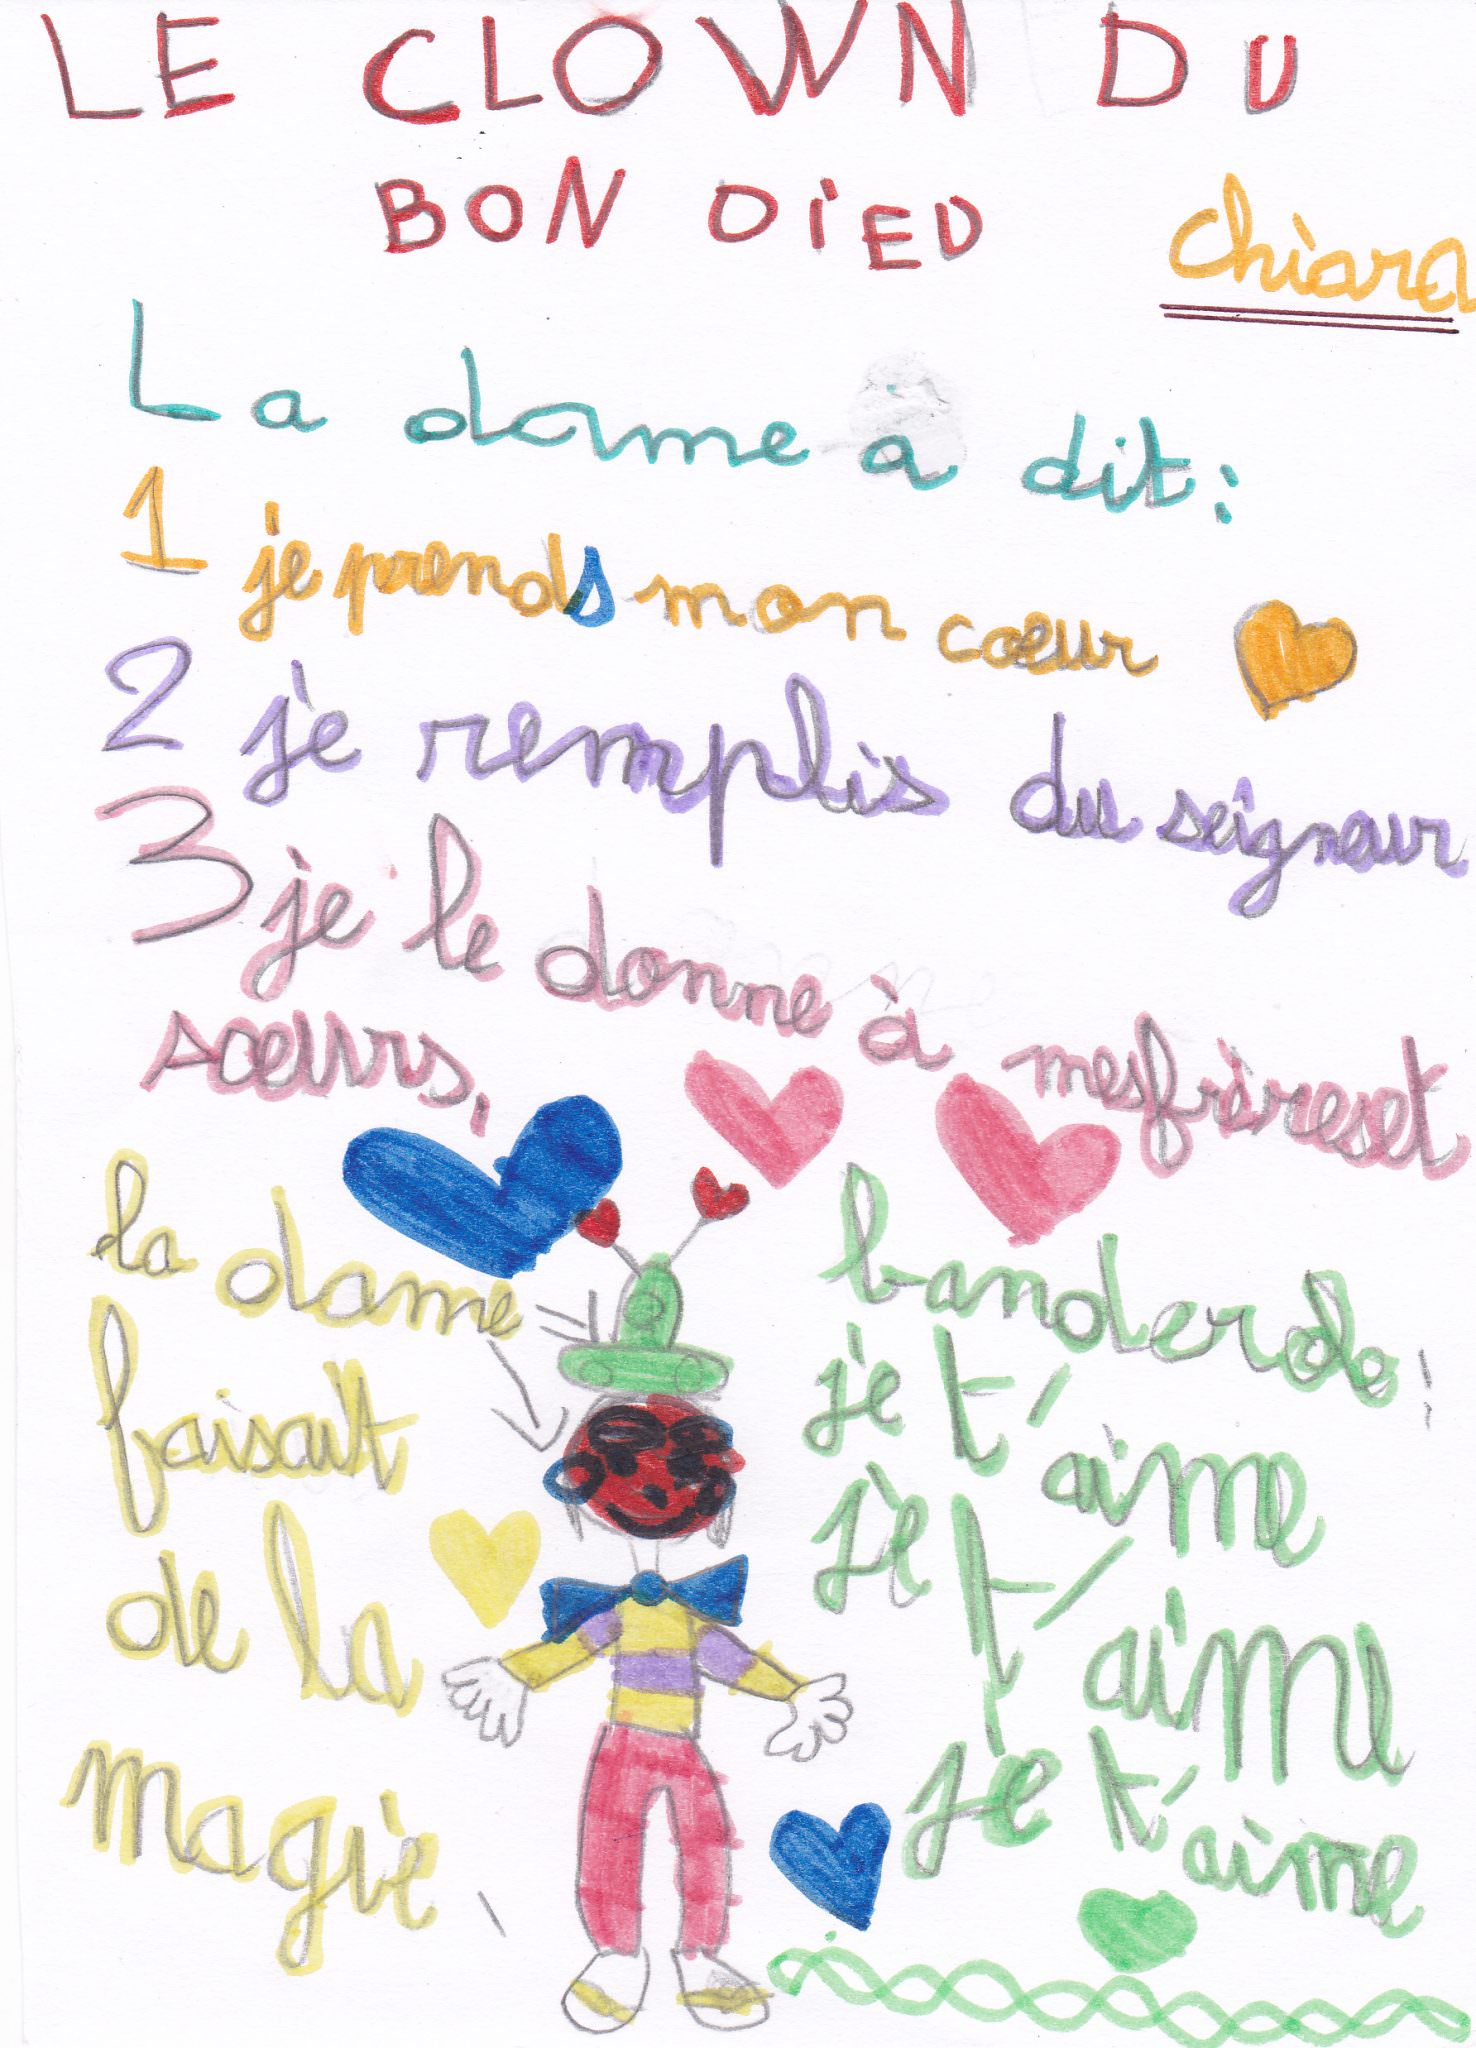 LE CLOWN DU
BON DIEU
Chiara
La dame à dit :
1 je prends mon coeur
2 je remplis du seigneur
3 je le donne à mes frères et
soeurs,
la dame
faisait
de la
magie
banderole :
je t'aime
je t'aime
je t'aime